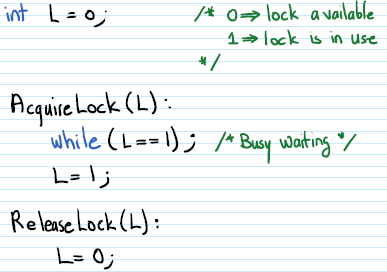 int L = 0; /* 0 ⇒ lock available
1 ⇒ lock is in use
*/
AcquireLock(L):
while (L == 1); /* Busy waiting */
L = 1;
ReleaseLock(L):
L = 0;